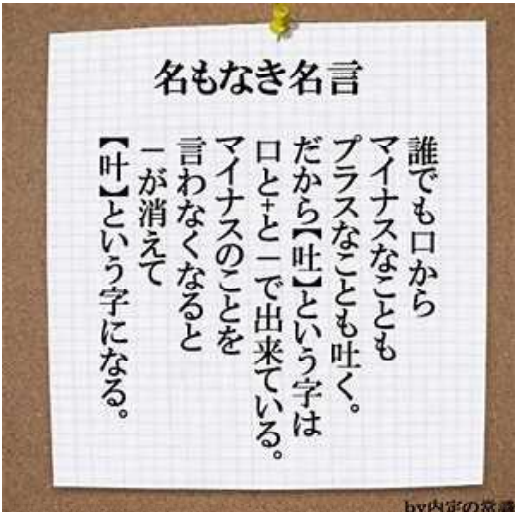 名もなき名言
誰でも口から
マイナスなことも
プラスなことも吐く。
だから【吐】という字は
口と+と−で出来ている。
マイナスのことを
言わなくなると
−が消えて
【叶】という字になる。
by内定の常識